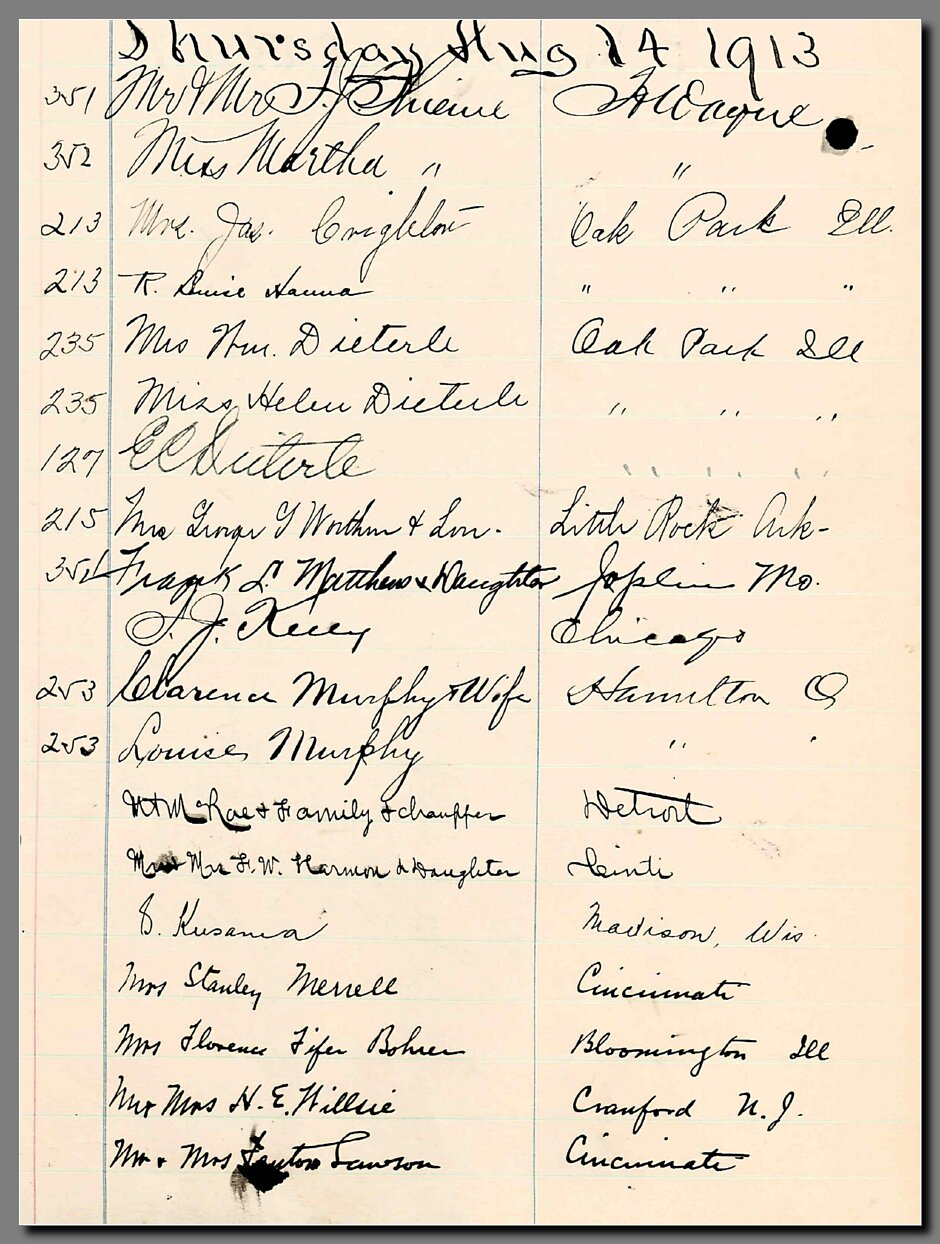 Thursday Aug 14 1913
351 Mr & Mrs F. J. Thieme Ft Wayne
352 Miss Martha " "
213 Mrs. Jas. Crighton Oak Park Ill.
213 R. Louise Hanna " " "
235 Mrs Wm. Dieterle Oak Park Ill
235 Miss Helen Dieterle " " "
127 E C Dieterle " " " "
215 Mrs George G Worthen & Son - Little Rock Ark -
351 Frank L Matthews & Daughter Joplin Mo.
S. J. Kelly Chicago
253 Clarence Murphy & Wife Hamilton O
253 Louise Murphy " "
McRae & Family & chauffer Detroit
Mr & Mrs F. W. Harmon & Daughter Cinti
S. Kusama Madison, Wis.
Mrs Stanley Merrell Cincinnati
Mrs Florence Fifer Bohrer Bloomington Ill
Mr & Mrs H. E. Willsie Cranford N. J.
Mr & Mrs Fenton Lawson Cincinnati